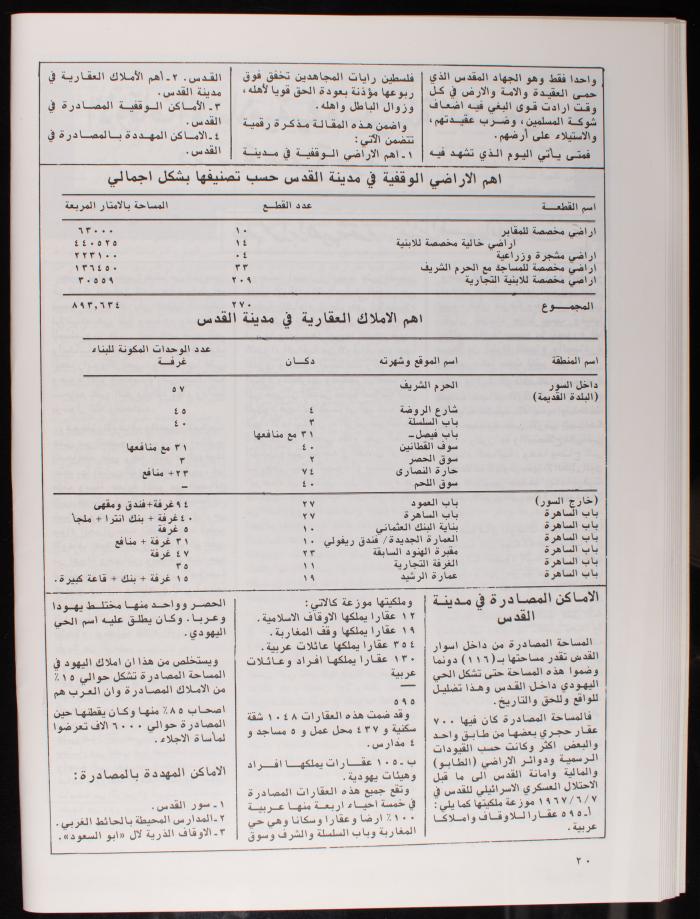 واحدا فقط وهو الجهاد المقدس الذي
حمى العقيدة والامة والارض في كل
وقت ارادت قوى البغي فيه اضعاف
شوكة المسلمين، وضرب عقيدتهم،
والاستيلاء على أرضهم.
فمتى يأتي اليوم الذي تشهد فيه
فلسطين رايات المجاهدين تخفق فوق
ربوعها مؤذنة بعودة الحق قويا لأهله،
وزوال الباطل واهله.
واضمن هذه المقالة مذكرة رقمية
تتضمن الآتي:
١ - أهم الاراضي الوقفية في مدينة
القدس. ٢ - أهم الأملاك العقارية في
مدينة القدس.
٣ - الأماكن الوقفية المصادرة في
القدس.
٤ - الاماكن المهددة بالمصادرة في
القدس.
اهم الاراضي الوقفية في مدينة القدس حسب تصنيفها بشكل اجمالي
اسم القطعة عدد القطع المساحة بالامتار المربعة
اراضي مخصصة للمقابر ١٠ ٦٣٠٠٠
اراضي خالية مخصصة للابنية ١٤ ٤٤٠٥٢٥
اراضي مشجرة وزراعية ٠٤ ٢٢٣١٠٠
اراضي مخصصة للمساجد مع الحرم الشريف ٣٣ ١٣٦٤٥٠
اراضي مخصصة للابنية التجارية ٢٠٩ ٣٠٥٥٩
المجموع ٢٧٠ ٨٩٣,٦٣٤
اهم الاملاك العقارية في مدينة القدس
اسم المنطقة اسم الموقع وشهرته دكان عدد الوحدات المكونة للبناء
غرفة
داخل السور الحرم الشريف ٥٧
(البلدة القديمة)
شارع الروضة ٤ ٤٥
باب السلسلة ٣ ٤٠
باب فيصل - ٣١ مع منافعها
سوف القطانين ٤٠ ٣١ مع منافعها
سوق الحصر ٢ ٣
حارة النصارى ٧٤ ٢٣+ منافع
سوق اللحم ٤٠ -
(خارج السور) باب العمود ٢٧ ٩٤غرفة+فندق ومقهى
باب الساهرة باب الساهرة ٢٧ ٤٠غرفة + بنك انترا + ملجأ
باب الساهرة بناية البنك العثماني ١٠ ٥ غرفة
باب الساهرة العمارة الجديدة/ فندق ريفولي ١٠ ٣١ غرفة + منافع
باب الساهرة مقبرة الهنود السابقة ٢٣ ٤٧ غرفة
باب الساهرة الغرفة التجارية ١١ ٣٥
باب الساهرة عمارة الرشيد ١٩ ١٥ غرفة + بنك + قاعة كبيرة.
الاماكن المصادرة في مدينة
القدس
المساحة المصادرة من داخل اسوار
القدس تقدر مساحتها بـ (١١٦) دونما
وضموا هذه المساحة حتى تشكل الحي
اليهودي داخل القدس وهذا تضليل
للواقع وللحق والتاريخ.
فالمساحة المصادرة كان فيها ٧٠٠
عقار حجري بعضها من طابق واحد
والبعض اكثر وكانت حسب القيودات
الرسمية ودوائر الاراضي (الطابو)
والمالية وامانة القدس الى ما قبل
الاحتلال العسكري الاسرائيلي للقدس في
١٩٦٧/٦/٧ موزعة ملكيتها كما يلي:
أ- ٥٩٥ عقارا للاوقاف واملاكا
عربية.
وملكيتها موزعة كالآتي:
١٢ عقارا يملكها الاوقاف الاسلامية.
١٩ عقارا يملكها وقف المغاربة.
٣٥٤ عقارا يملكها عائلات عربية.
١٣٠ عقارا يملكها افراد وعائلات
عربية
—
٥٩٥
وقد ضمت هذه العقارات ١٠٤٨ شقة
سكنية و ٤٣٧ محل عمل و ٥ مساجد و
٤ مدارس.
ب - ١٠٥ عقارات يملكها افراد
وهيئات يهودية.
وتقع جميع هذه العقارات المصادرة
في خمسة احياء اربعة منها عربية
١٠٠٪ ارضا وعقارا وسكانا وهي حي
المغاربة وباب السلسلة والشرف وسوق
الحصر وواحد منها مختلط يهودا
وعربا. وكان يطلق عليه اسم الحي
اليهودي.
ويستخلص من هذا ان املاك اليهود في
المساحة المصادرة تشكل حوالي ١٥٪
من الاملاك المصادرة وان العرب هم
اصحاب ٨٥٪ منها وكان يقطنها حين
المصادرة حوالي ٦٠٠٠ الاف تعرضوا
لمأساة الاجلاء.
الاماكن المهددة بالمصادرة:
١ - سور القدس.
٢ - المدارس المحيطة بالحائط الغربي.
٣ - الاوقاف الذرية لال «ابو السعود».
٢٠